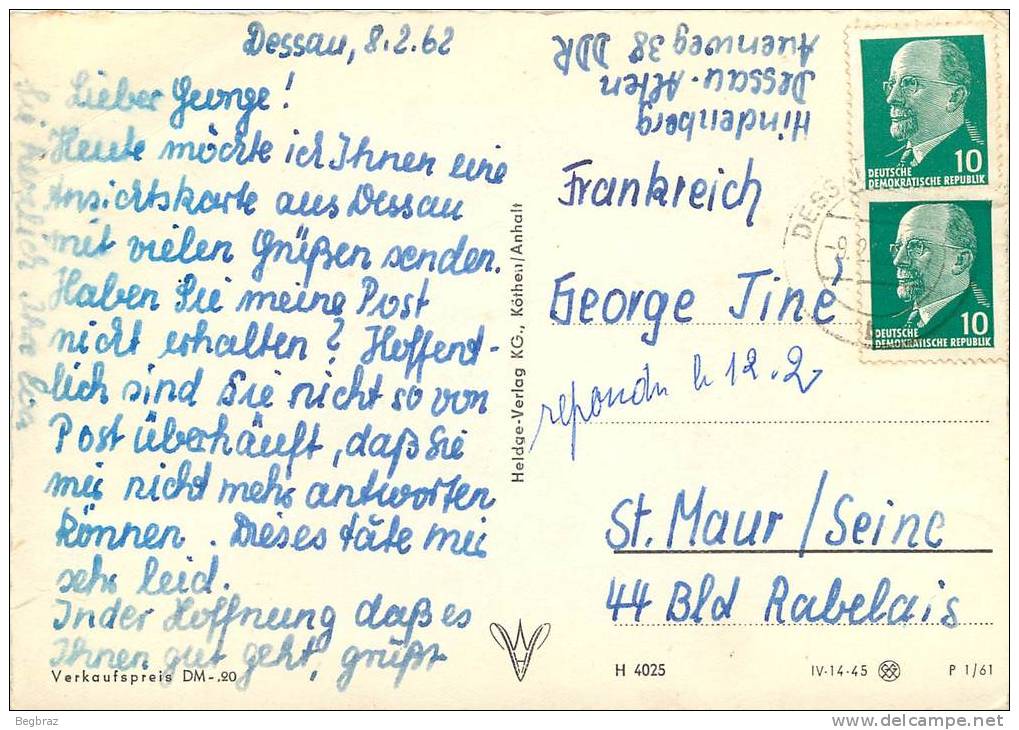 Dessau, 8.2.62
Lieber George!
Heute möchte ich Ihnen eine
Ansichtskarte aus Dessau
mit vielen Grüßen senden.
Haben Sie meine Post
nicht erhalten? Hoffent-
lich sind Sie nicht so von
Post überhäuft, daß Sie
mir nicht mehr antworten
können. Dieses täte mir
sehr leid.
In der Hoffnung daß es
Ihnen gut geht, grüßt
Sie herzlich Ihre
Verkaufspreis DM-.20
Heldge-Verlag KG., Köthen/Anhalt
Hindenberg
Dessau-Alten
Auenweg 38 DDR
Frankreich
George Tiné
répondu le 12.2
St. Maur/Seine
44 Bld Rabelais
H 4025
IV-14-45
P 1/61
10
DEUTSCHE
DEMOKRATISCHE REPUBLIK
10
DEUTSCHE
DEMOKRATISCHE REPUBLIK
Begbraz
delcampe.net